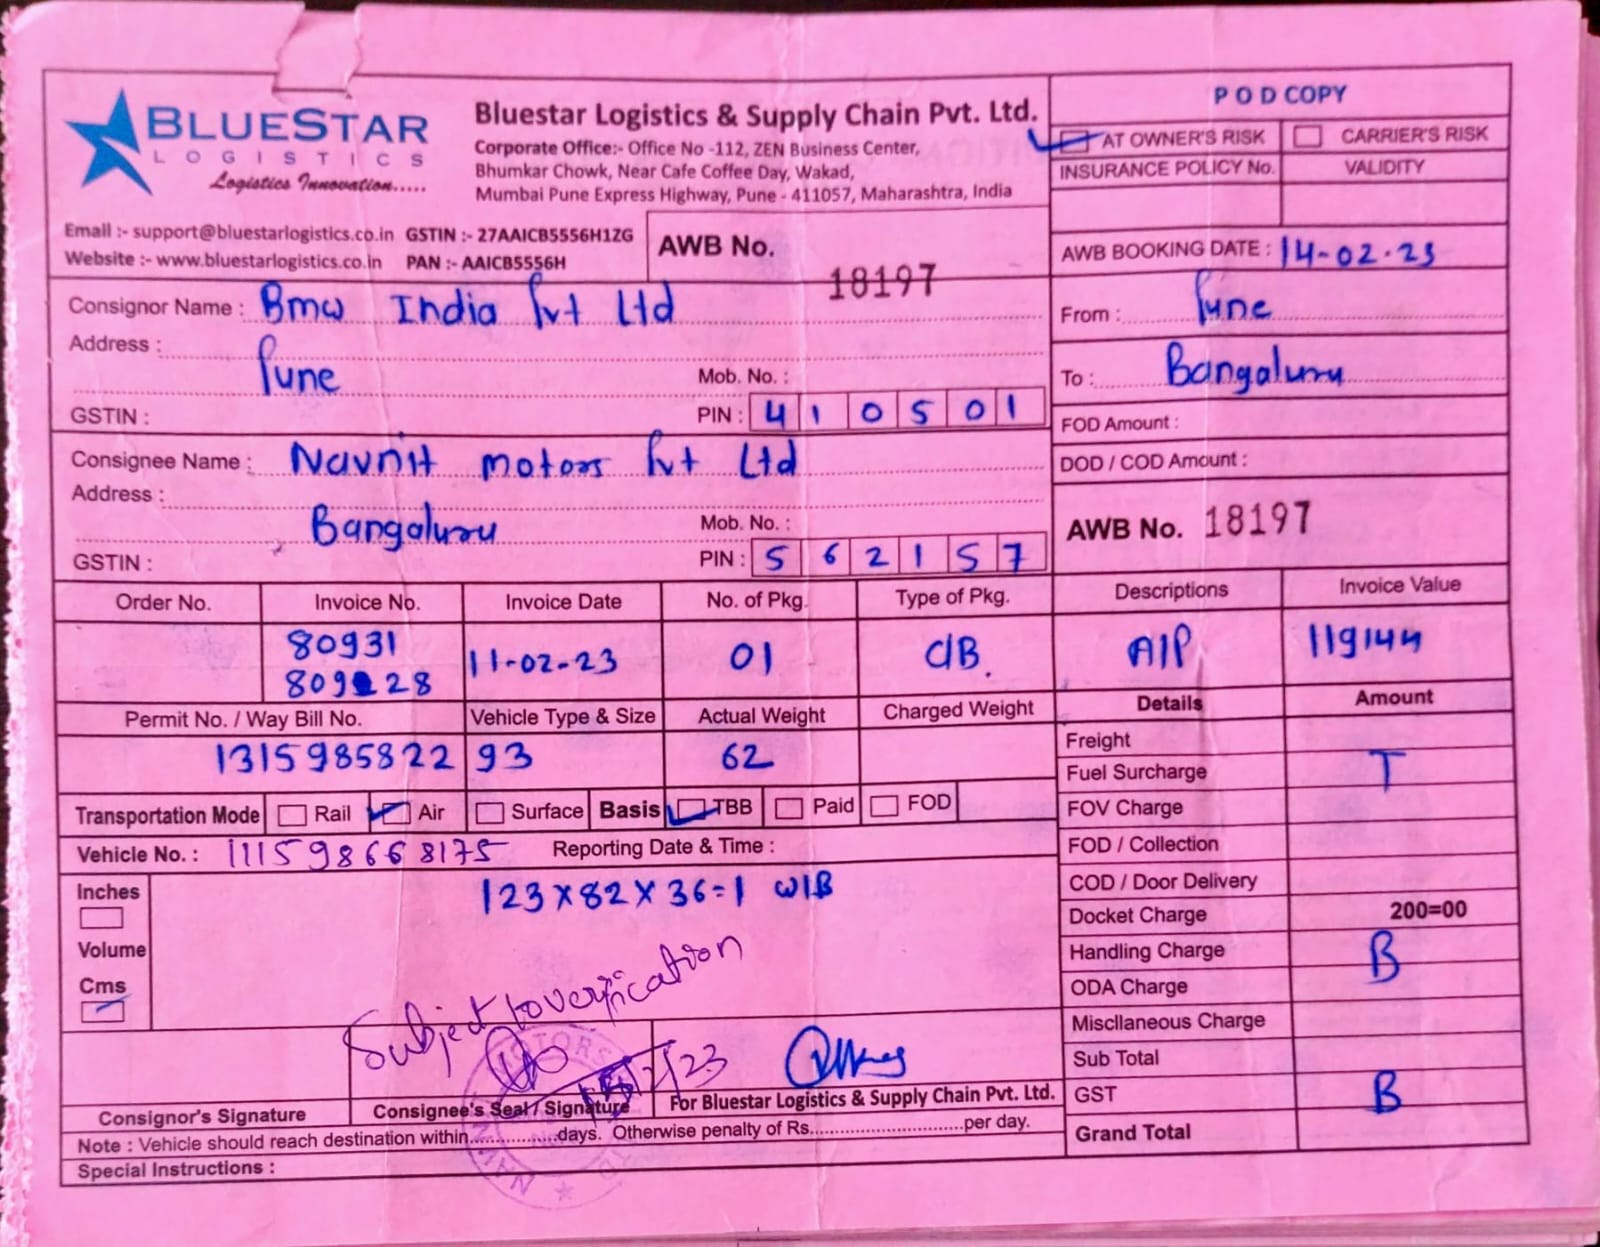 BLUESTAR
LOGISTICS
Logistics Innovation.....
Bluestar Logistics & Supply Chain Pvt. Ltd.
Corporate Office:- Office No -112, ZEN Business Center,
Bhumkar Chowk, Near Cafe Coffee Day, Wakad,
Mumbai Pune Express Highway, Pune - 411057, Maharashtra, India
Email :- support@bluestarlogistics.co.in GSTIN :- 27AAICB5556H1ZG
Website :- www.bluestarlogistics.co.in PAN :- AAICB5556H
AWB No. 18197
POD COPY
AT OWNER'S RISK CARRIER'S RISK
INSURANCE POLICY No. VALIDITY
AWB BOOKING DATE : 14-02-23
Consignor Name : Bmw India Pvt Ltd
Address :
Pune
Mob. No. :
GSTIN :
PIN : 410501
From : Pune
To : Bangaluru
FOD Amount :
DOD / COD Amount :
Consignee Name : Navnit motors Pvt Ltd
Address :
Bangaluru
Mob. No. :
GSTIN :
PIN : 562157
AWB No. 18197
Order No. Invoice No. Invoice Date No. of Pkg. Type of Pkg. Descriptions Invoice Value
80931 11-02-23 01 C/B. A/P 119144
28
Permit No. / Way Bill No. Vehicle Type & Size Actual Weight Charged Weight
1315985822 93 62
Transportation Mode Rail Air Surface Basis TBB Paid FOD
Vehicle No. : 111598668175 Reporting Date & Time :
Inches
Volume
Cms
123x82x36=1 W/B
Subject to verification
/23
MOTORS
Consignor's Signature
Consignee's Seal / Signature
For Bluestar Logistics & Supply Chain Pvt. Ltd.
Note : Vehicle should reach destination within................days. Otherwise penalty of Rs...........................per day.
Special Instructions :
Details Amount
Freight
T
Fuel Surcharge
FOV Charge
FOD / Collection
COD / Door Delivery
Docket Charge 200=00
Handling Charge B
ODA Charge
Miscllaneous Charge
Sub Total
GST B
Grand Total